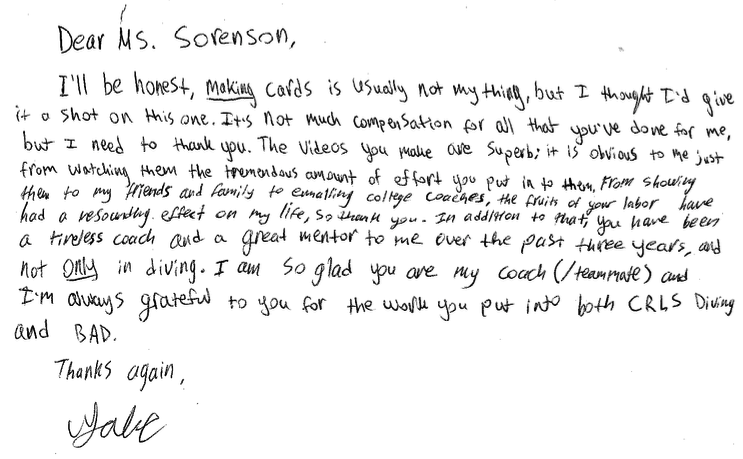 Dear Ms. Sorenson,
I'll be honest, making cards is usually not my thing, but I thought I'd give
it a shot on this one. It's not much compensation for all that you've done for me,
but I need to thank you. The videos you make are superb; it is obvious to me just
from watching them the tremendous amount of effort you put in to them. From showing
them to my friends and family to emailing college coaches, the fruits of your labor have
had a resounding effect on my life, so thank you. In addition to that, you have been
a tireless coach and a great mentor to me over the past three years, and
not only in diving. I am so glad you are my coach (/teammate) and
I'm always grateful to you for the work you put into both CRLS Diving
and BAD.
Thanks again,